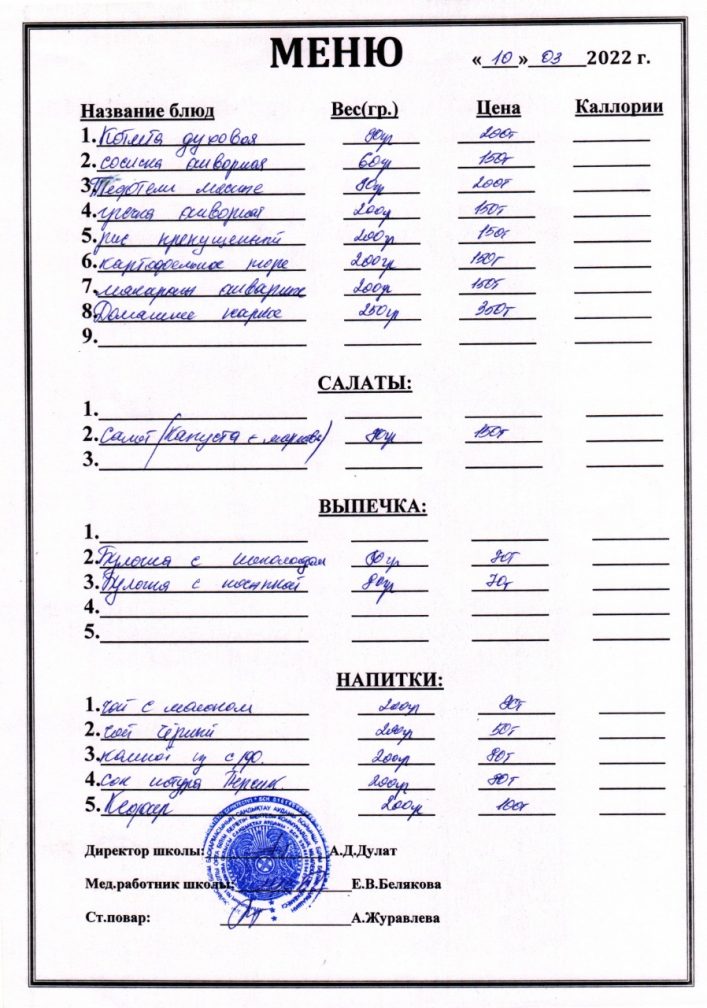 МЕНЮ «10» 03 2022 г.
Название блюд Вес(гр.) Цена Каллории
1. Котлета духовая 80гр 200т
2. сосиска отварная 60гр 150т
3. Тефтели мясные 80гр 200т
4. гречка отварная 200гр 150т
5. рис 200гр 150т
6. картофельное пюре 200гр 150т
7. макароны отварные 200гр 150т
8. Домашнее жаркое 250гр 350т
9.
САЛАТЫ:
1.
2. Салат (капуста с морковью) 80гр 150т
3.
ВЫПЕЧКА:
1.
2. Булочка с шоколадом 80гр 80т
3. Булочка с 80гр 70т
4.
5.
НАПИТКИ:
1. чай с молоком 200гр 80т
2. чай чёрный 200гр 50т
3. компот из с/фр. 200гр 80т
4. Сок 200гр 80т
5. Кефир 200гр 100т
Директор школы: А.Д.Дулат
Мед.работник школы: Е.В.Белякова
Ст.повар: А.Журавлева